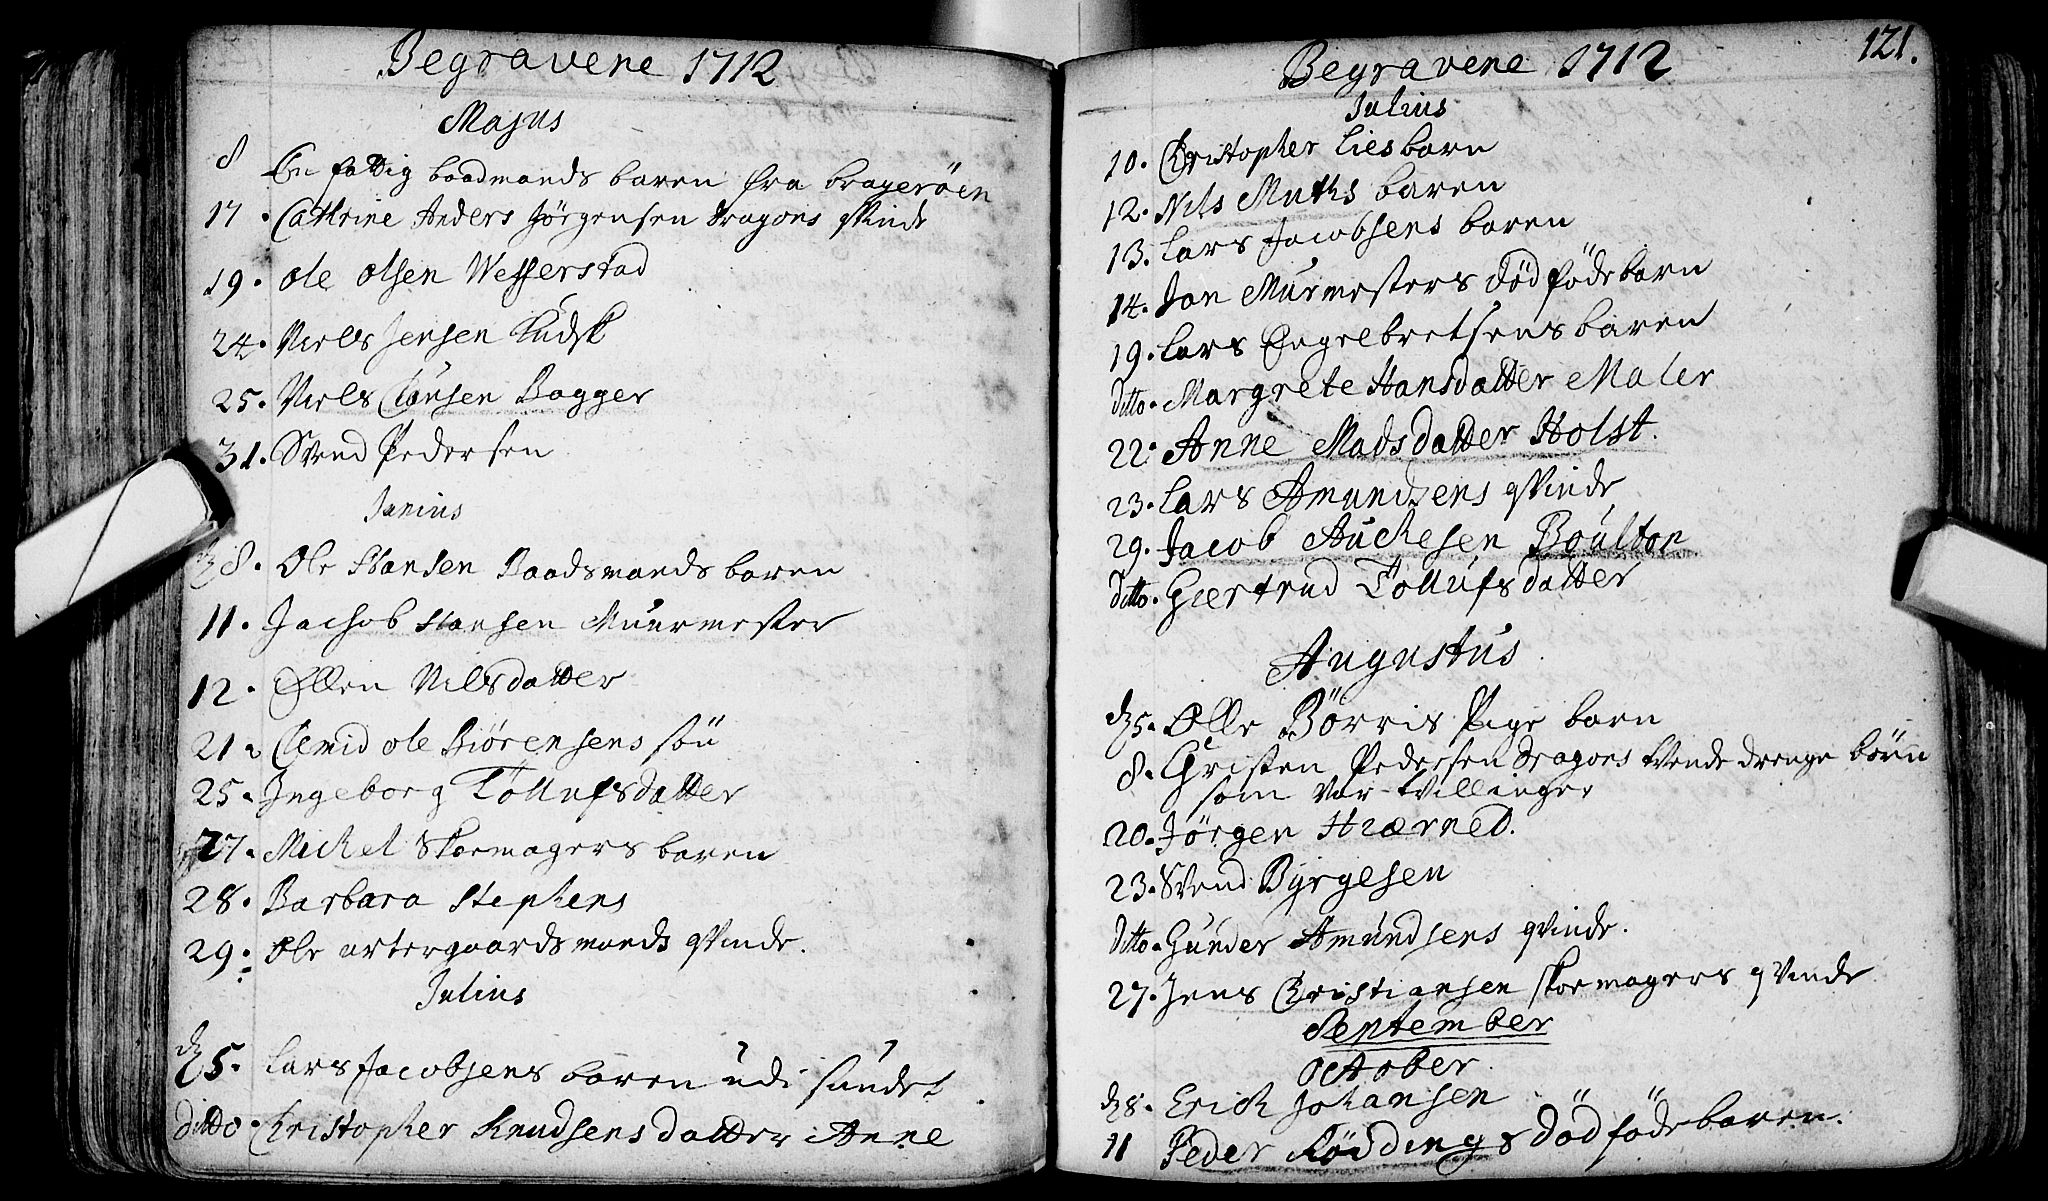 Begravene 1712
Majus
8 En fattig baadmands baren fra brageröen
17. Cathrine Anders Jörgensen dragons qvinde
19. Ole Olsen Wesserstad
24. Niels Jensen Kudsk
25. Niels Clausen Bagger
31. Svend Pedersen
Junius
dz 8. Ole Hansen Baadsmands baren
11. Jachob Hansen Muurmester
12. Ellen Nilsdatter
21. Clemid ole Biörensens sön
25. Ingeborg Töllufsdatter
27. Michel Skoemagers baren
28. Barbara Stephens
29. Ole artergaardsmands qvinde.
Julius
dz 5. Lars Jacobsens baren udi sundet
ditto. Christopher Knudsens datter Anne
Begravene 1712
121.
Julius
10. Christopher Lies barn
12. Nils Muths baren
13. Lars Jacobsens baren
14. Jan Murmesters död föde barn
19. Lars Engelbretsens baren
ditto. Margrete Hansdatter Maler
22. Anne Madsdatter Holst.
23. Lars Amundsens qvinde
29. Jacob Auchesen Boulton
ditto. Giertrud Tollufsdatter
Augustus
dz 5. Olle Börris Pige barn
8. Christen Pedersen Dragons tvende drenge börn
som var tvillinger
20. Jörgen Hiærned.
23. Svend Byrgesen
ditto. Gunder Amundsens qvinde.
27. Jens Christiansen skoemagers qvinde
September
October
dz 8. Erich Johansen
11 Peder Röddings död föde baren.